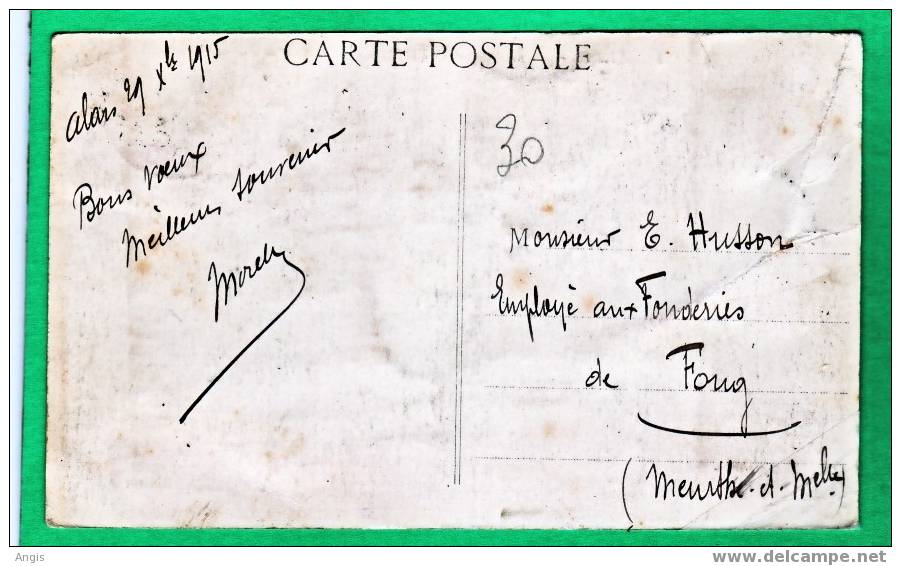 CARTE POSTALE
Alais 29 Xbre 1915
Bons vœux
Meilleur souvenir
30
Monsieur E. Husson
Employé aux Fonderies
de Foug
(Meurthe-et-Melle)
Angis
www.delcampe.net